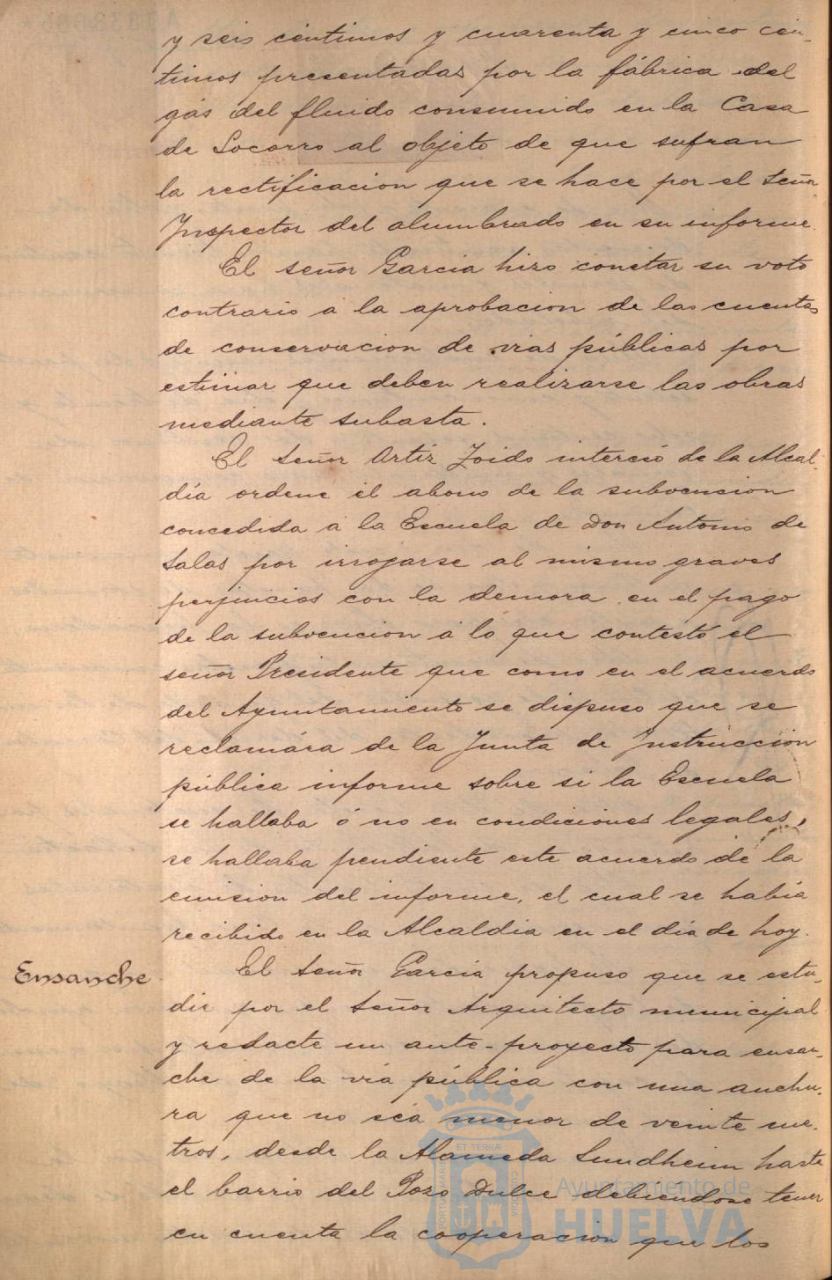 y seis céntimos y cuarenta y cinco cén-
timos presentadas por la fábrica del
gás del fluido consumido en la Casa
de Socorro al objeto de que sufran
la rectificacion que se hace por el señor
Inspector del alumbrado en su informe.
El señor Garcia hizo constar su voto
contrario á la aprobacion de las cuentas
de conservacion de vias públicas por
estimar que deben realizarse las obras
mediante subasta.
El señor Ortiz Zoido interesó de la Alcal-
día ordene el abono de la subvencion
concedida á la Escuela de Don Antonio de
Salas por irrogarse al mismo graves
perjuicios con la demora en el pago
de la subvencion á lo que contestó el
señor Presidente que como en el acuerdo
del Ayuntamiento se dispuso que se
reclamara de la Junta de Instruccion
pública informe sobre si la Escuela
se hallaba ó no en condiciones legales,
se hallaba pendiente este acuerdo de la
emision del informe, el cual se había
recibido en la Alcaldia en el día de hoy.
Ensanche
El señor Garcia propuso que se estu-
die por el señor Arquitecto municipal
y redacte un ante-proyecto para ensan-
che de la vía pública con una anchu-
ra que no sea menor de veinte me-
tros, desde la Alameda Sundheim hasta
el barrio del Pozo Dulce debiendose tener
en cuenta la cooperacion que los
Ayuntamiento de
HUELVA